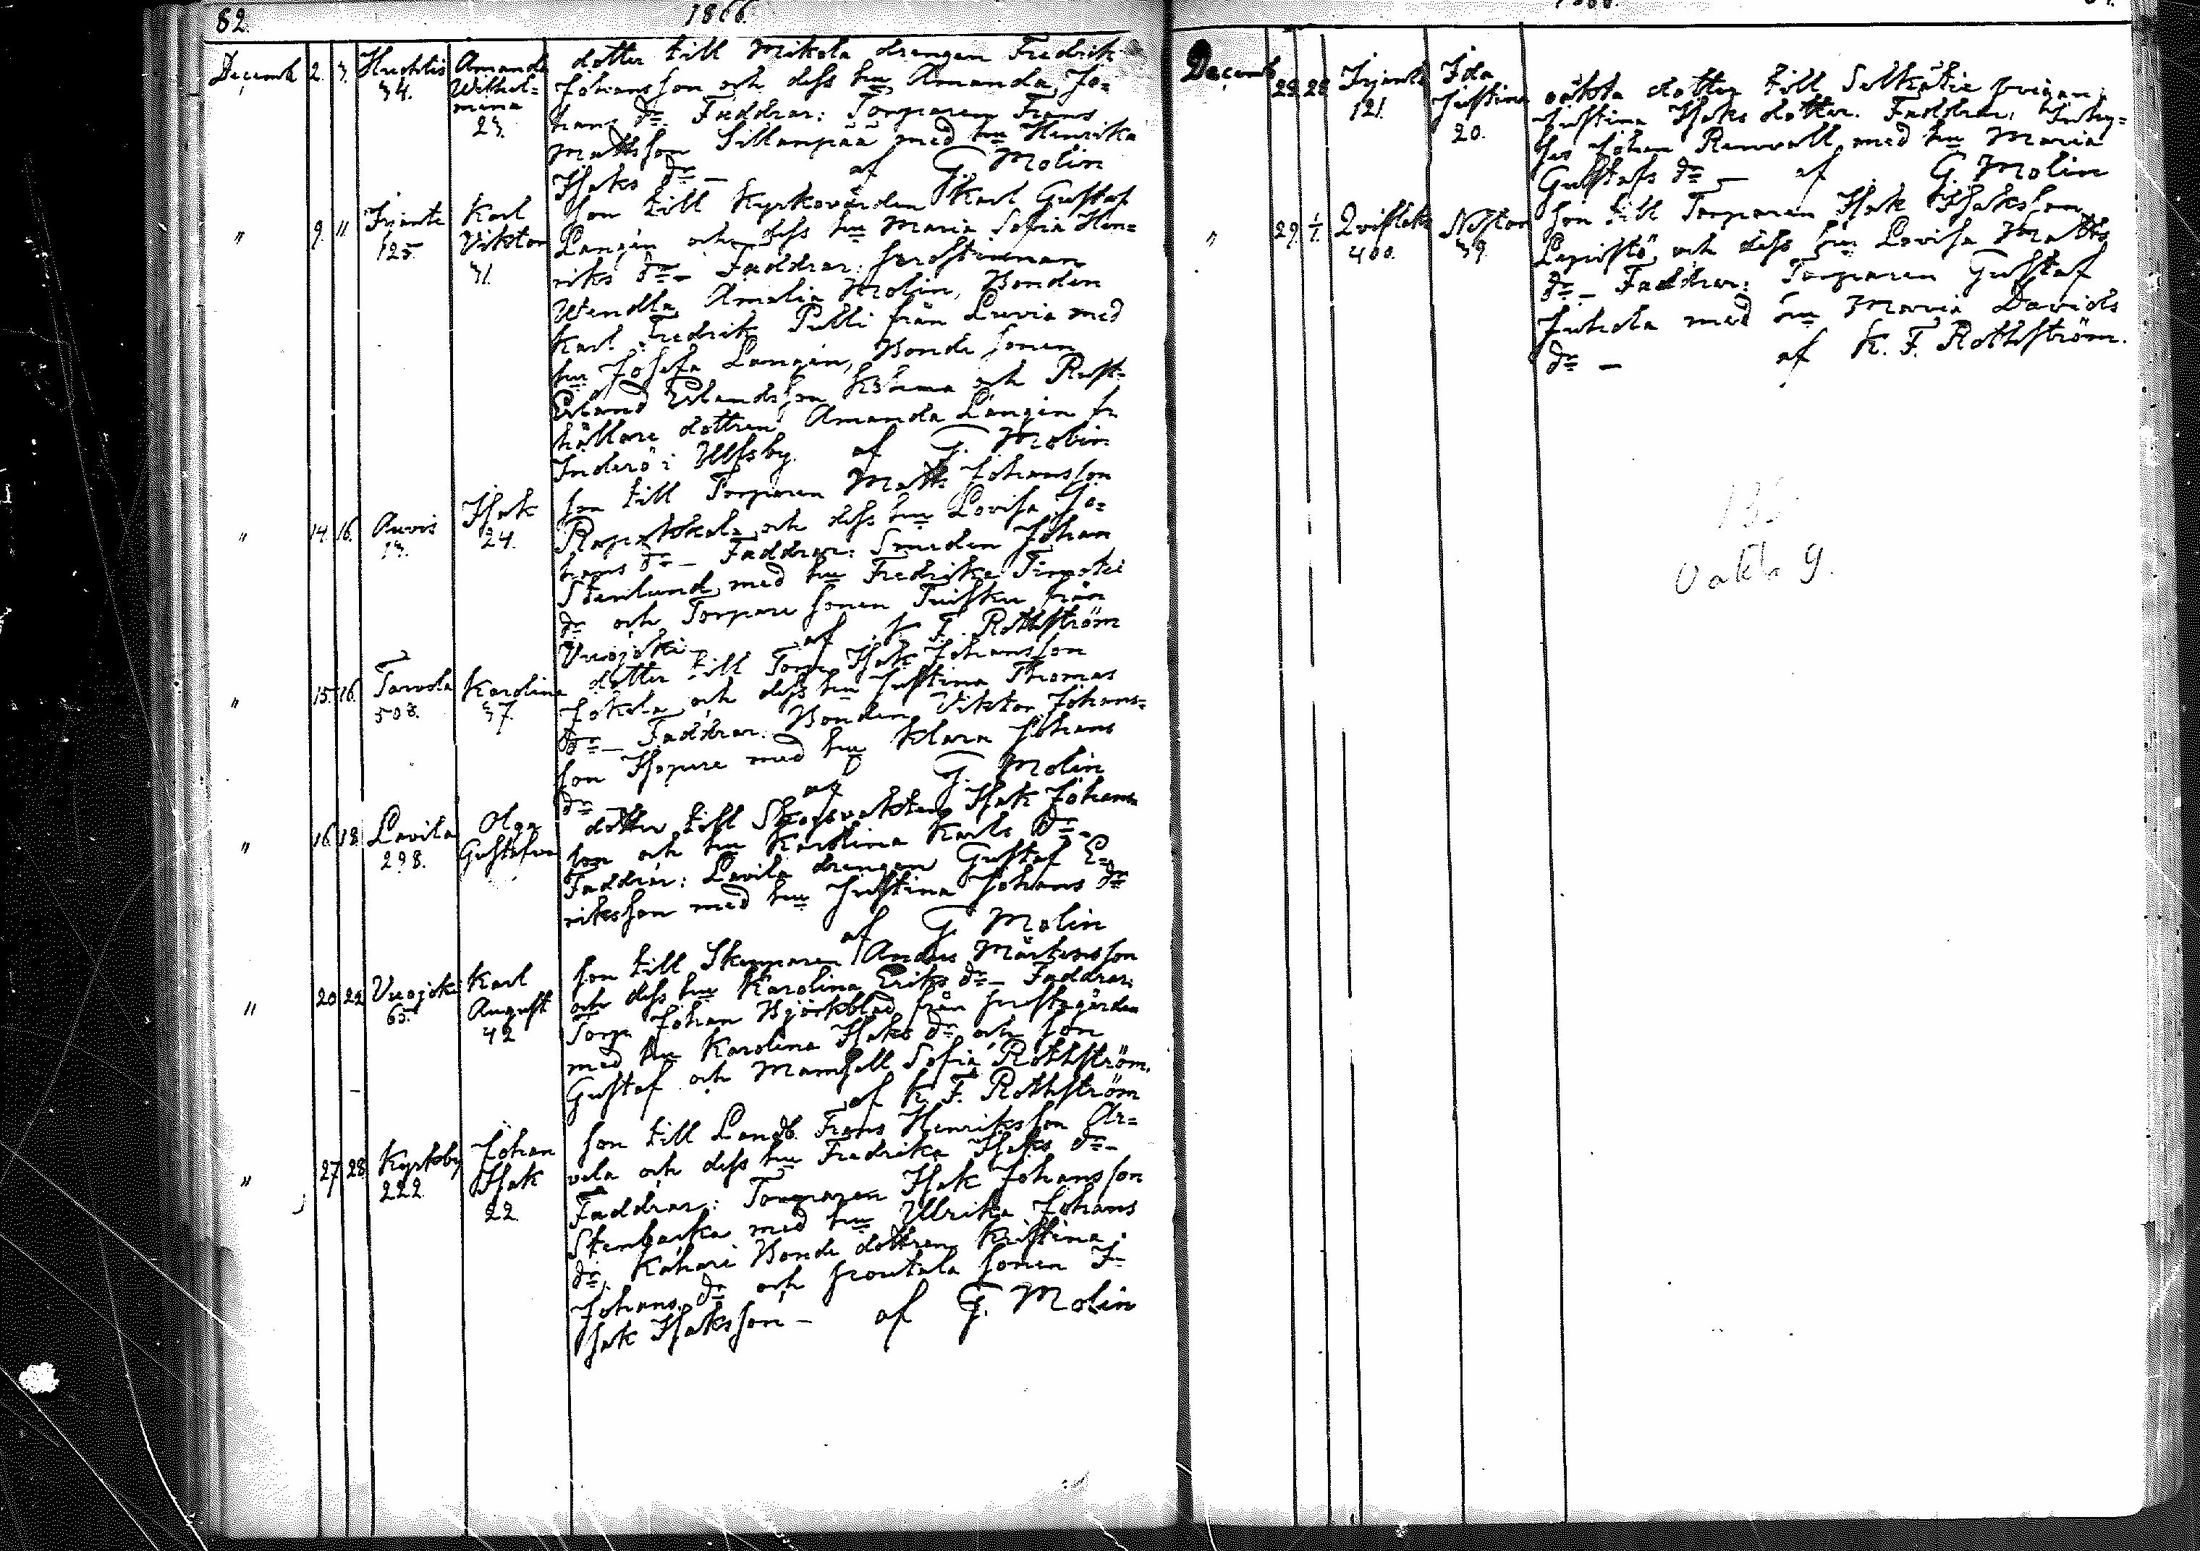 82.
1866.
Decemb 2. 3. Huchtis 34. Amanda Wilhel=
mina 23.
dotter till Mikola drengen Fredrik
Johansson och dess hu Amanda Jo=
hans dr. Faddrar: Torparen Frans
Mattsson Sillanpää med hu Henrika
Isaks dr — af G. Molin
" 9. 11 Irjante 125. Karl
Viktor
31.
son till Kyrkovärden Karl Gustaf
Langén och dess hu Maria Sofia Hen=
riks dr — Faddrar:
Wendla Amalia Molin, Bonden
Karl Fredrik Pulli från Luvia med
hu Josefa Langén, Bonde sonen
Erland Erlandsson och Rust=
hållare dottren Amanda Langén fr
Inderö i Ulfsby. af G. Molin
" 14. 16. Auvis 13. Isak
24.
son till Torparen Matts Johansson
och dess hu Lovisa Jo=
hans dr — Faddrar: Smeden Johan
Stenlund med hu Fredrika
dr och Torpare sonen Tuisku från
Vuojoki — af K. F. Rothström
" 15. 16. Tarvola 508. Karolina
37.
dotter till Torp. Isak Johansson
Jokola och dess hu Justina Thomas
dr — Faddrar: Bonden Viktor Johans=
son Isopere med hu Klara Johans
dr af G. Molin
" 16. 18. Lavila 298. Olga
Gustafva
dotter till Skogsvaktaren Isak Johans
son och hu Karolina Karls dr —
Faddrar: Lavila drengen Gustaf E=
riksson med hu Justina Johans dr
af G. Molin
" 20 22 Vuojoki 65. Karl
August
42
son till Skepparen Anders Mårtensson
och dess hu Karolina Eriks dr — Faddrar:
Torp. Johan Björkblad från prestgården
med hu Karolina Isaks dr och son
Gustaf och Mamsell Sofia Rothström.
af K. F. Rothström
" 27 28 Kyrkoby 222. Johan
Isak
22
son till Landb. Frans Henriksson Or=
vela och dess hu Fredrika Isaks dr —
Faddrar: Torparen Isak Johansson
Stenbacka med hu Ulrika Johans
dr, Kahari Bonde dottren Kristina
Johans dr och sonen I=
sak Isaksson — af G. Molin
Decemb 28 Irjante 121. Ida
Justina
20.
oäkta dotter till Silkätie pigan
Justina Isaks dotter. Faddrar: Inhy=
ses Johan Renvall med hu Maria
Gustafs dr — af G. Molin
" 29. 1/1. 400. Nestor
39.
son till Torparen Isak Isaksson
Lepistö och dess hu Lovisa Matts
dr — Faddrar: Torparen Gustaf
Juhola med hu Maria Davids
dr — af K. F. Rothström.
9.